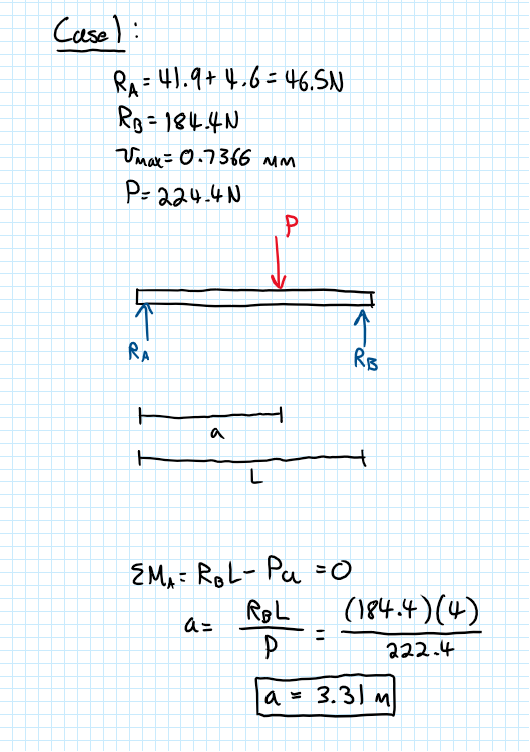 Case 1:
R_A = 41.9 + 4.6 = 46.5N
R_B = 184.4N
v_max = 0.7366 mm
P = 224.4N
P
R_A
R_B
a
L
ΣM_A = R_B L - Pa = 0
a = R_B L / P = (184.4)(4) / 222.4
a = 3.31 m